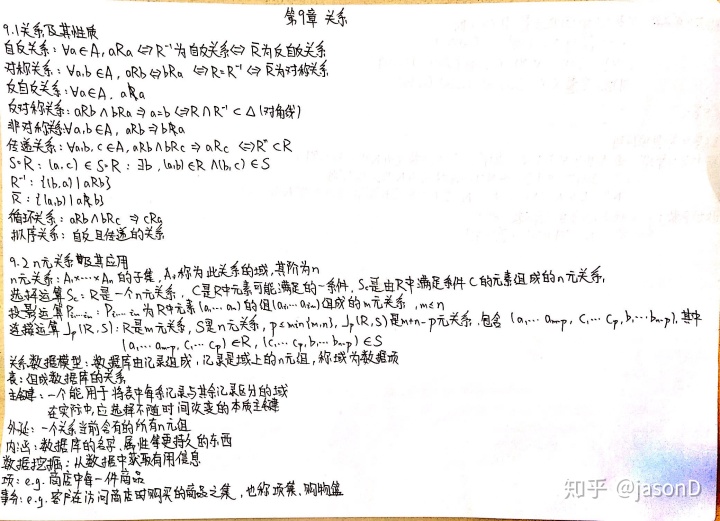 第9章 关系
9.1关系及其性质
自反关系：∀a∈A, aRa ⇔ R⁻¹为自反关系⇔ R̅为反自反关系
对称关系：∀a,b∈A, aRb⇔bRa ⇔R=R⁻¹⇔ R̅为对称关系
反自反关系：∀a∈A, aR̸a
反对称关系：aRb∧bRa⇒a=b⇔R∩R⁻¹⊂Δ(对角线)
非对称关系∀a,b∈A, aRb⇒bR̸a
传递关系：∀a,b,c∈A, aRb∧bRc⇒aRc ⇔Rⁿ⊂R
S∘R：(a,c)∈S∘R：∃b, (a,b)∈R∧(b,c)∈S
R⁻¹：{(b,a)|aRb}
R̅：{(a,b)|aR̸b}
循环关系：aRb∧bRc⇒cRa
拟序关系：自反且传递的关系
9.2 n元关系及其应用
n元关系：A₁×⋯×Aₙ的子集，Aᵢ称为此关系的域，其阶为n
选择运算Sc：R是一个n元关系，C是R中元素可能满足的一条件，Sc是由R中满足条件C的元素组成的n元关系，
投影运算Pi₁…iₘ：Pi₁…iₘ为R中元素(a₁,…aₙ)的组(ai₁,…aiₘ)组成的m元关系，m≤n
连接运算Jp(R,S)：R是m元关系，S是n元关系，p≤min{m,n}，Jp(R,S)是m+n-p元关系，包含(a₁…am-p, c₁…cp, b₁…bn-p)，其中
(a₁…am-p, c₁…cp)∈R, (c₁…cp, b₁…bn-p)∈S
关系数据模型：数据库由记录组成，记录是域上的n元组，称域为数据项
表：组成数据库的关系
主键：一个能用于将表中每条记录与其余记录区分的域
在实际中，应选择不随时间改变的本质主键
外延：一个关系当前含有的所有n元组
内涵：数据库的名字、属性等更持久的东西
数据挖掘：从数据中获取有用信息
项：e.g. 商店中每一件商品
事务：e.g. 客户在访问商店时购买的商品之集，也称项集、购物篮
知乎 @jasonD